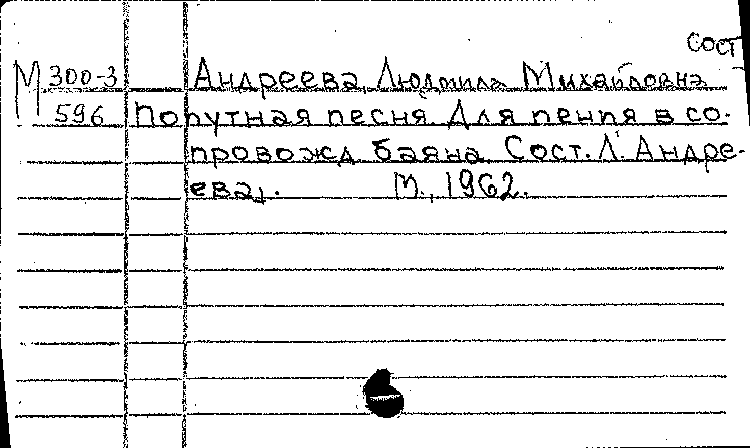 сост
М 300-3 Андреева, Людмила Михайловна
596 Попутная песня. Для пения в со-
провожд. баяна. Сост. Л. Андре-
ева. М., 1962.